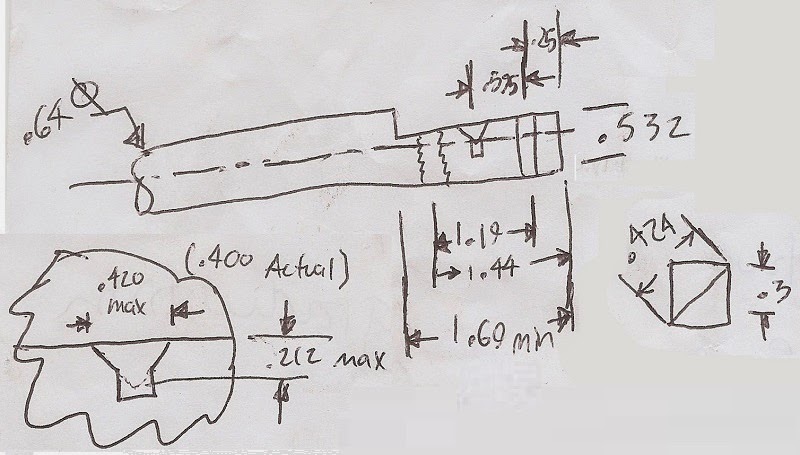 .25
.595
.64 Ø
.532
1.19
1.44
1.60 min
.424
.3
.420
max
(.400 Actual)
.212 max